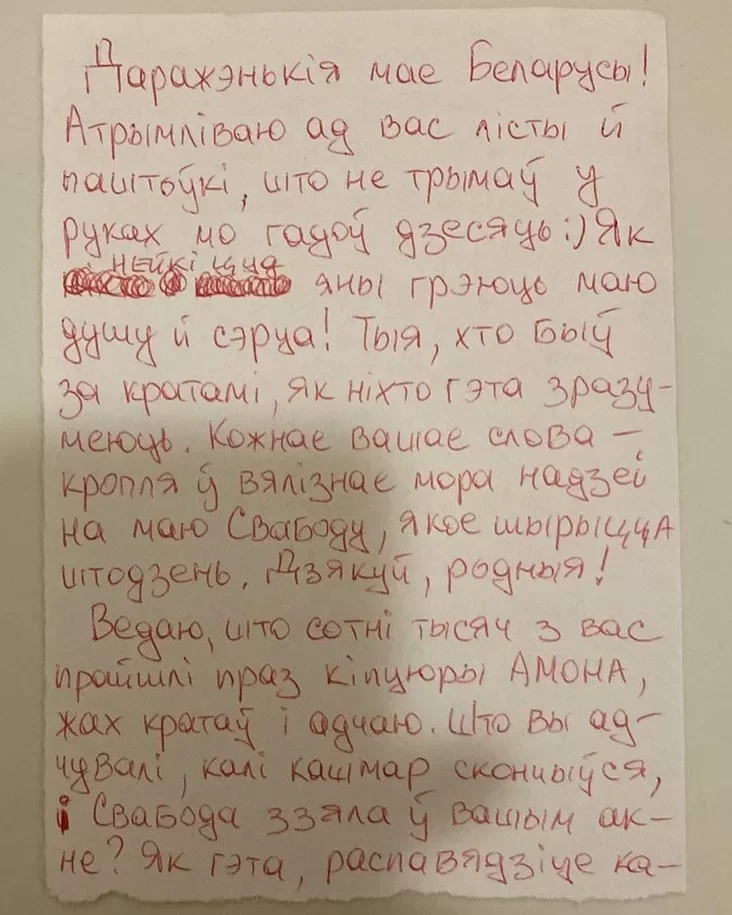 Даражэнькія мае Беларусы!
Атрымліваю ад вас лісты й
паштоўкі, што не трымаў у
руках мо гадоў дзесяць:) Як
нейкі цуд
яны грэюць маю
душу й сэрца! Тыя, хто быў
за кратамі, як ніхто гэта зразу-
меюць. Кожнае вашае слова –
кропля ў вялізнае мора надзеі
на маю Свабоду, якое шырыцца
штодзень. Дзякуй, родныя!
Ведаю, што сотні тысяч з вас
прайшлі праз кіпцюры АМОНА,
жах кратаў і адчаю. Што вы ад-
чувалі, калі кашмар скончыўся,
і Свабода ззяла ў вашым ак-
не? Як гэта, распавядзіце ка-